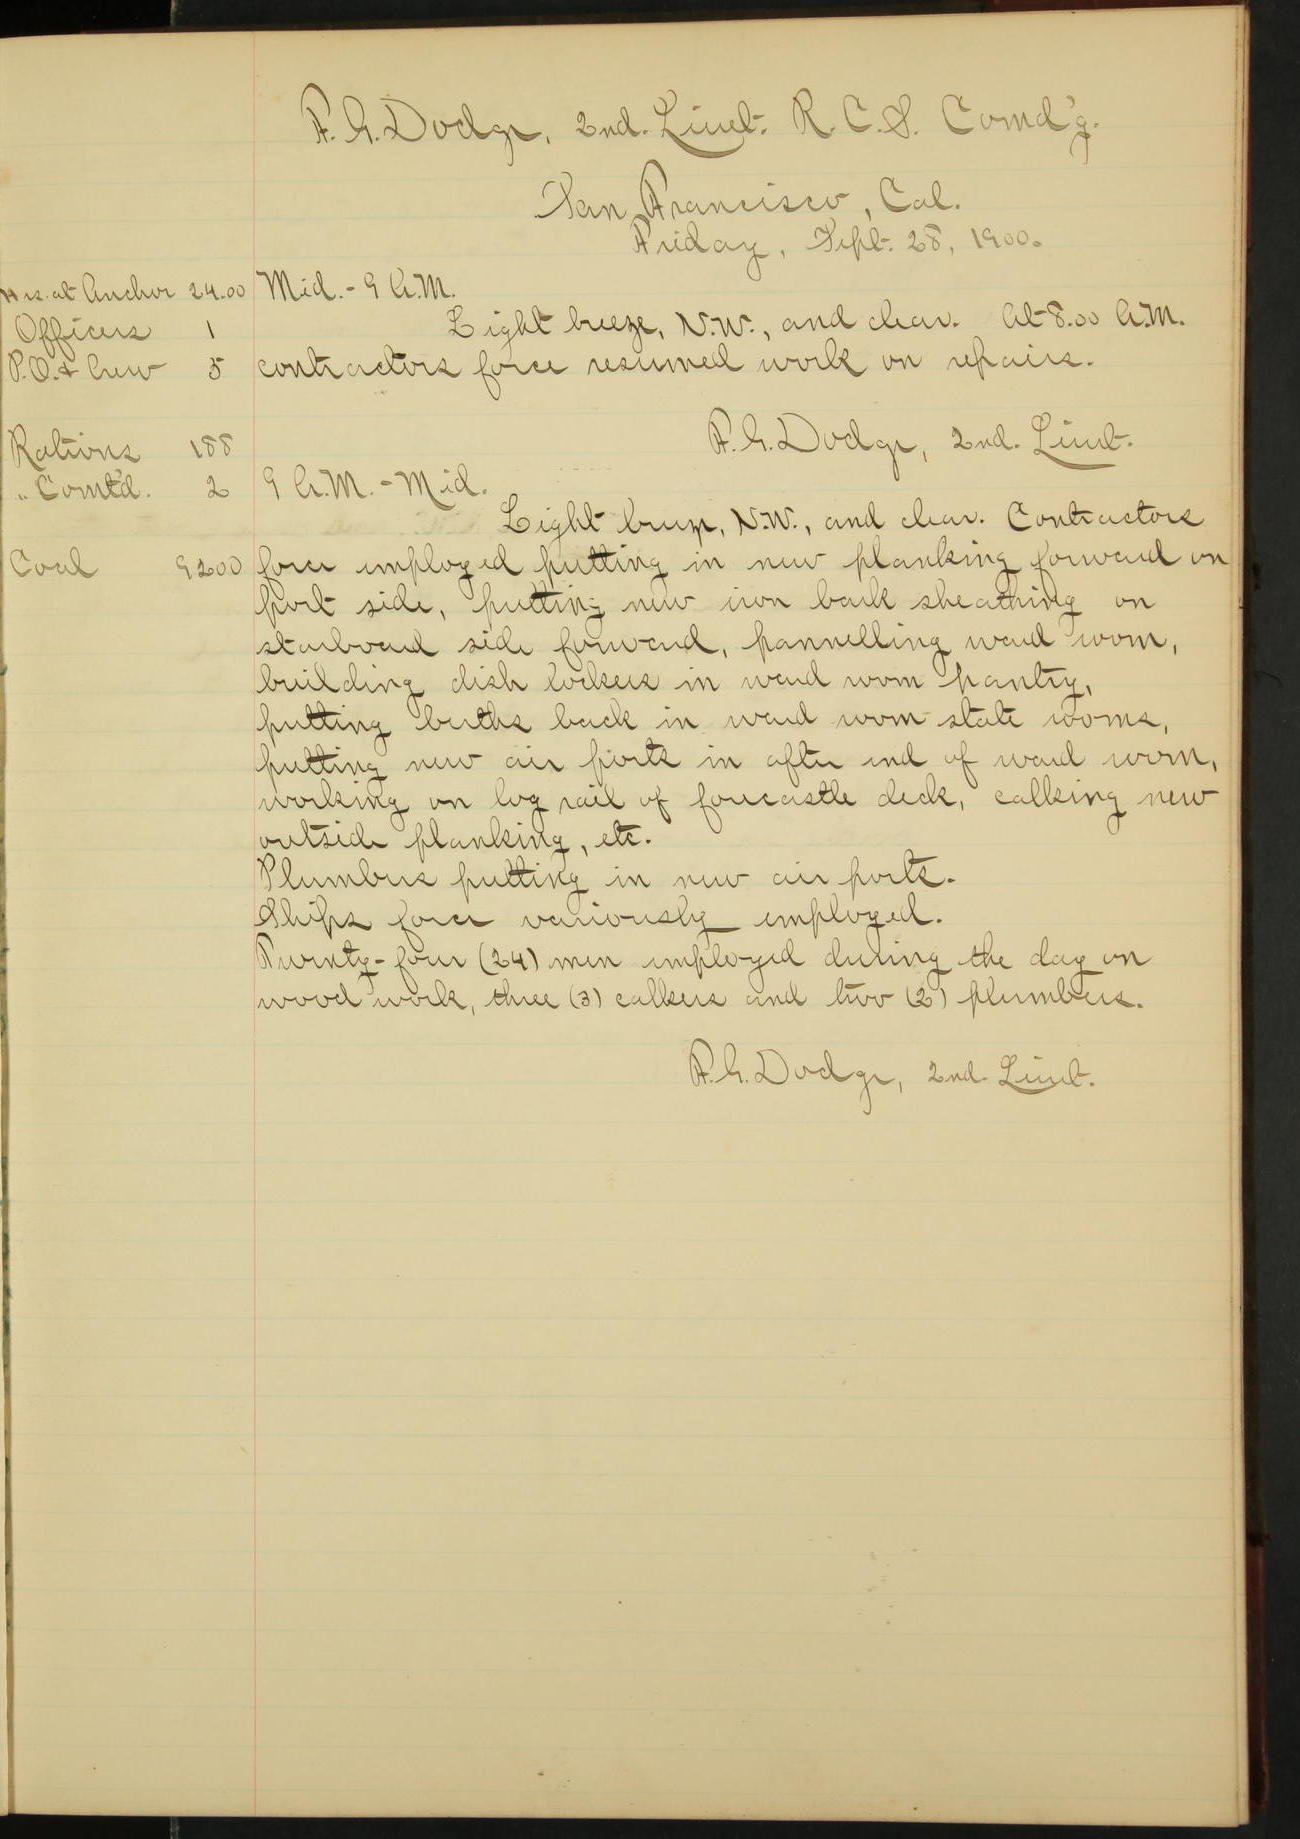 F. G. Dodge, 2nd. Lieut. R. C. S. Comd'g.
San Francisco, Cal.
Friday, Sept. 28, 1900.
Hrs. at Anchor 24.00 Mid. - 9 A.M.
Officers 1 Light breeze, N.W., and clear. At 8.00 A.M.
P.O. & Crew 5 contractors force resumed work on repairs.
F. G. Dodge, 2nd. Lieut.
Rations 188
" Comt'd. 2 9 A.M. - Mid.
Light breeze, N.W., and clear. Contractors
Coal 9200 force employed putting in new planking forward on
port side, putting new iron bark sheathing on
starboard side forward, pannelling ward room,
building dish lockers in ward room pantry,
putting berths back in ward room state rooms,
putting new air ports in after end of ward room,
working on log rail of forecastle deck, calking new
outside planking, etc.
Plumbers putting in new air ports.
Ships force variously employed.
Twenty-four (24) men employed during the day on
wood work, three (3) calkers and two (2) plumbers.
F. G. Dodge, 2nd. Lieut.